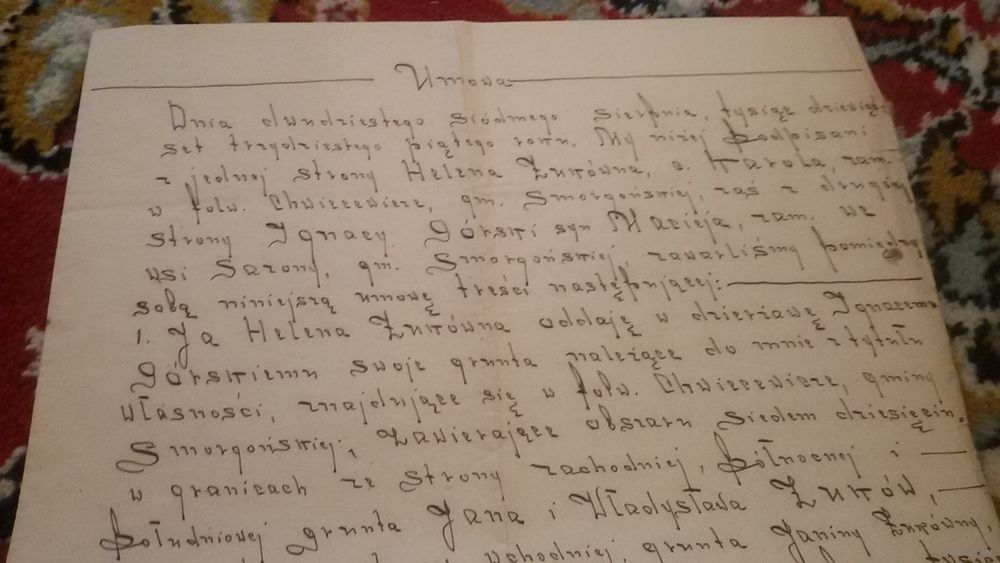 Umowa
Dnia dwudziestego siódmego sierpnia, tysiąc dziewięć-
set trzydziestego piątego roku. My niżej podpisani
z jednej strony Helena Żukówna, c. Karola, zam.
w folw. Chwiecewicze, gm. Smorgońskiej, zaś z drugiej
strony Ignacy Górski syn Macieja, zam. we
wsi Sarony, gm. Smorgońskiej, zawarliśmy pomiędzy
sobą niniejszą umowę treści następującej:
1. Ja Helena Żukówna oddaję w dzierżawę Ignacemu
Górskiemu swoje grunta należące do mnie z tytułu
własności, znajdujące się w folw. Chwiecewicze, gminy
Smorgońskiej, zawierające obszaru siedem dziesięcin,
w granicach ze strony zachodniej, północnej i
południowej grunta Jana i Władysława Żuków,
wschodniej, grunta Janiny Żukówny,